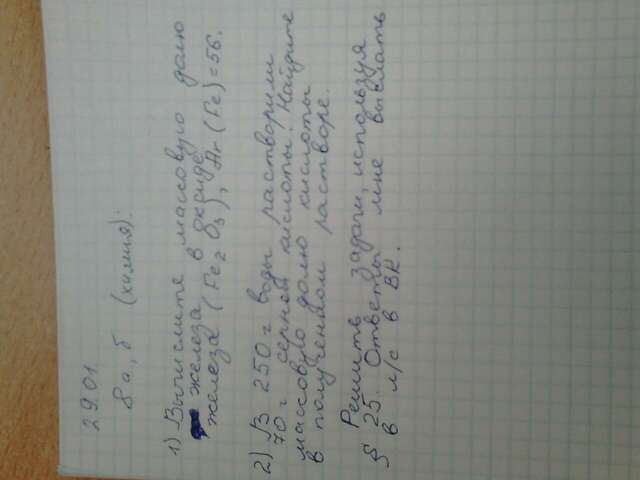 29.01.
8а,б (химия):
1) Вычислите массовую долю
железа в оксиде
железа (Fe₂O₃), Ar (Fe)=56.
2) В 250 г воды растворили
70 г серной кислоты. Найдите
массовую долю кислоты
в полученном растворе.
Решить задачи, используя
§ 25. Ответы мне выслать
в л/с в ВК.